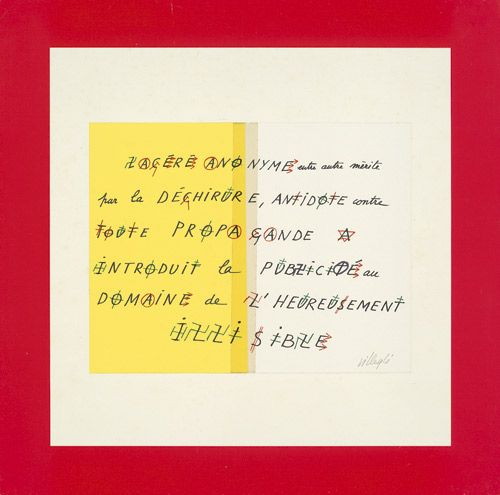 LACÉRÉ ANONYME entre autre mérite
par la DÉCHIRURE, ANTIDOTE contre
TOUTE PROPAGANDE A
INTRODUIT la PUBLICITÉ au
DOMAINE de L'HEUREUSEMENT
ILLISIBLE
villeglé